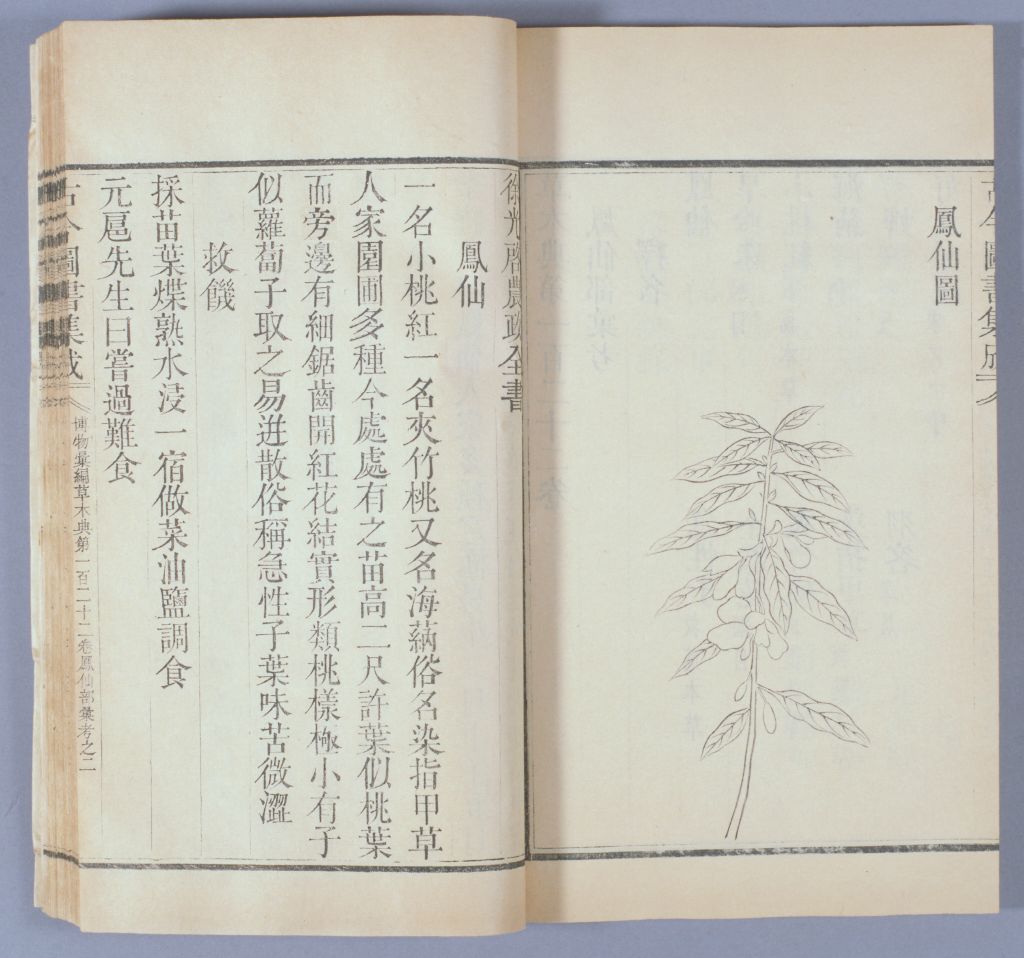 鳳仙圖
徐光啓農政全書
鳳仙
一名小桃紅一名夾竹桃又名海蒳俗名染指甲草
人家園圃多種今處處有之苗高二尺許葉似桃葉
而旁邊有細鋸齒開紅花結實形類桃樣極小有子
似蘿蔔子取之易迸散俗稱急性子葉味苦微澀
救饑
採苗葉煠熟水浸一宿做菜油鹽調食
元扈先生曰嘗過難食
古今圖書集成
博物彙編草木典第一百二十二卷鳳仙部彙考之二